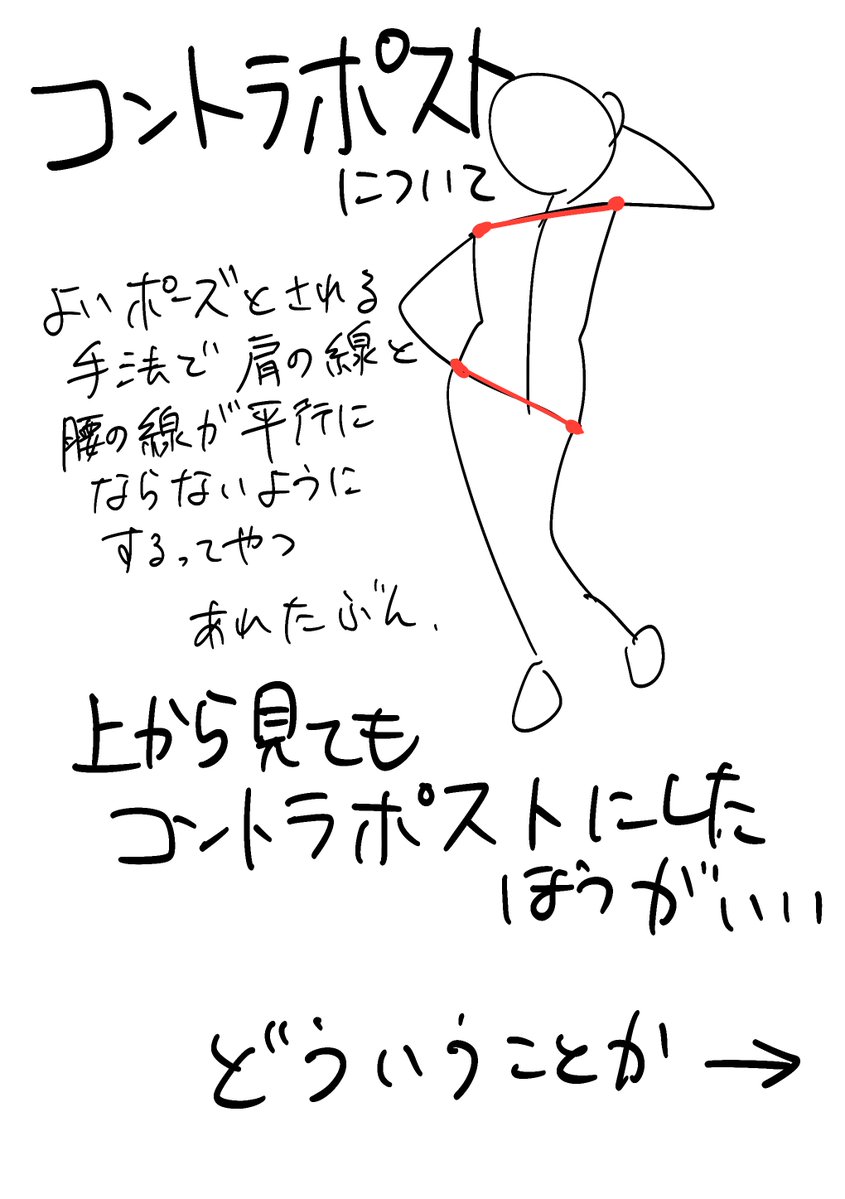 コントラポスト
について
よいポーズとされる
手法で肩の線と
腰の線が平行に
ならないように
するってやつ
あれたぶん.
上から見ても
コントラポストにした
ほうがいい
どういうことか→